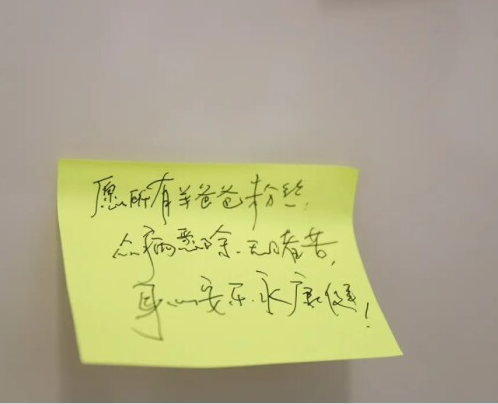 愿所有羊爸爸粉丝:
众病悉除、无诸苦,
身心安乐、永康健!